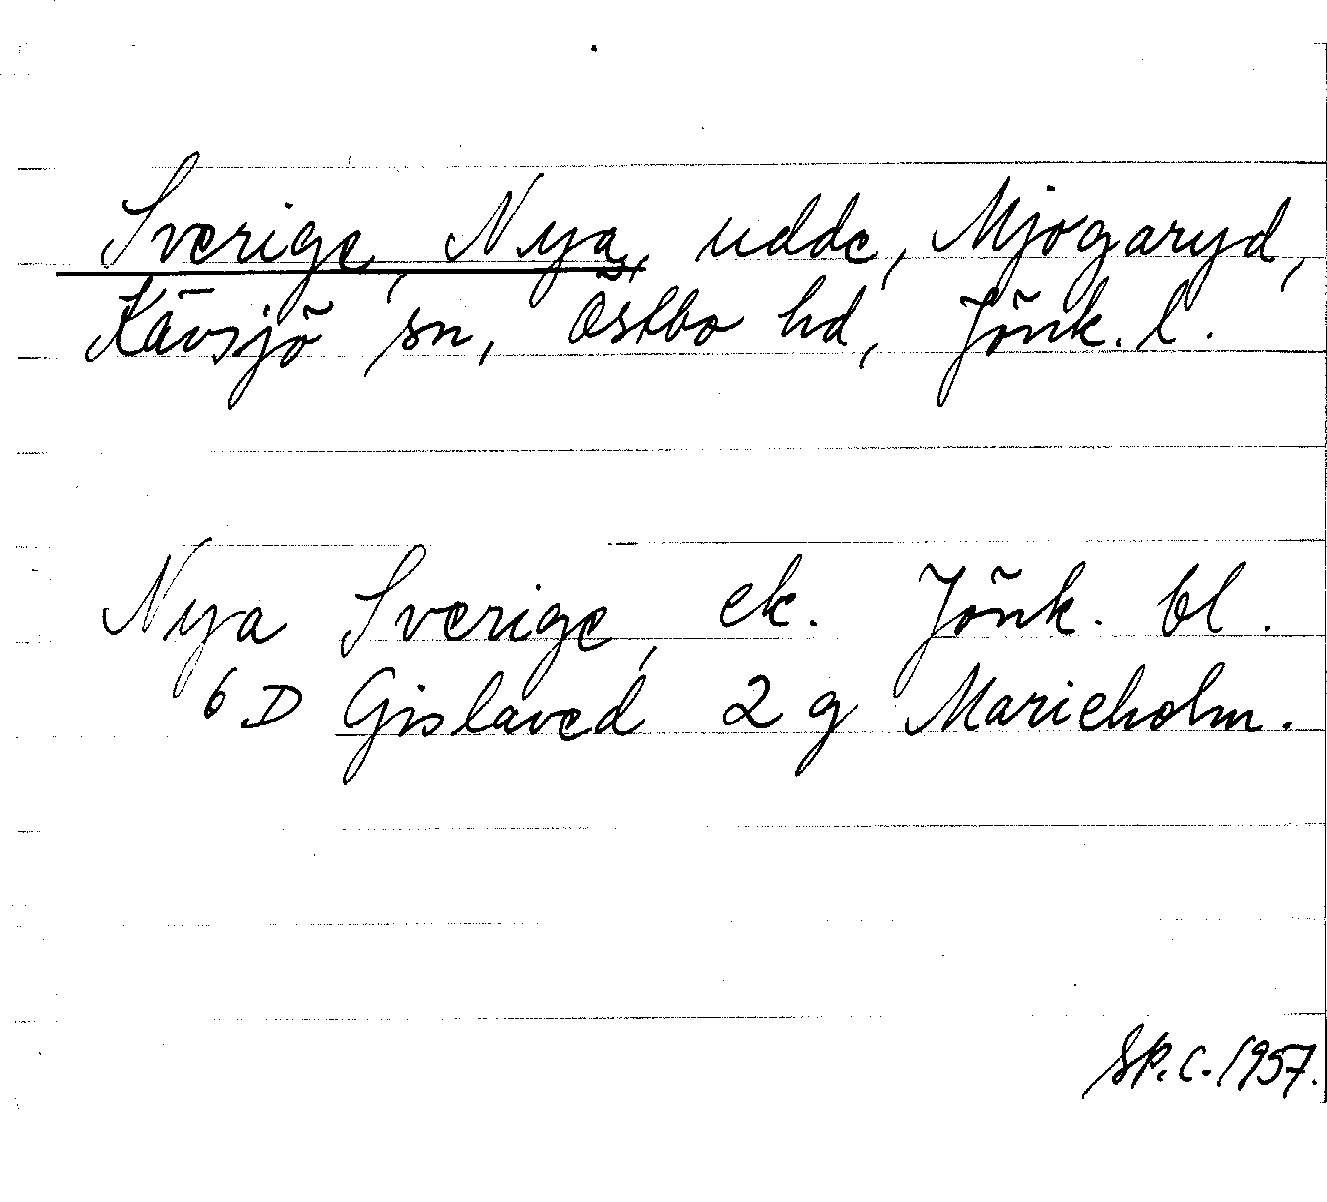 Sverige, Nya, udde, Mjogaryd,
Kävsjö sn, Östbo hd, Jönk. l.
Nya Sverige, ek. Jönk. bl.
6 D Gislaved 2 g Marieholm.
SP.C. 1957.